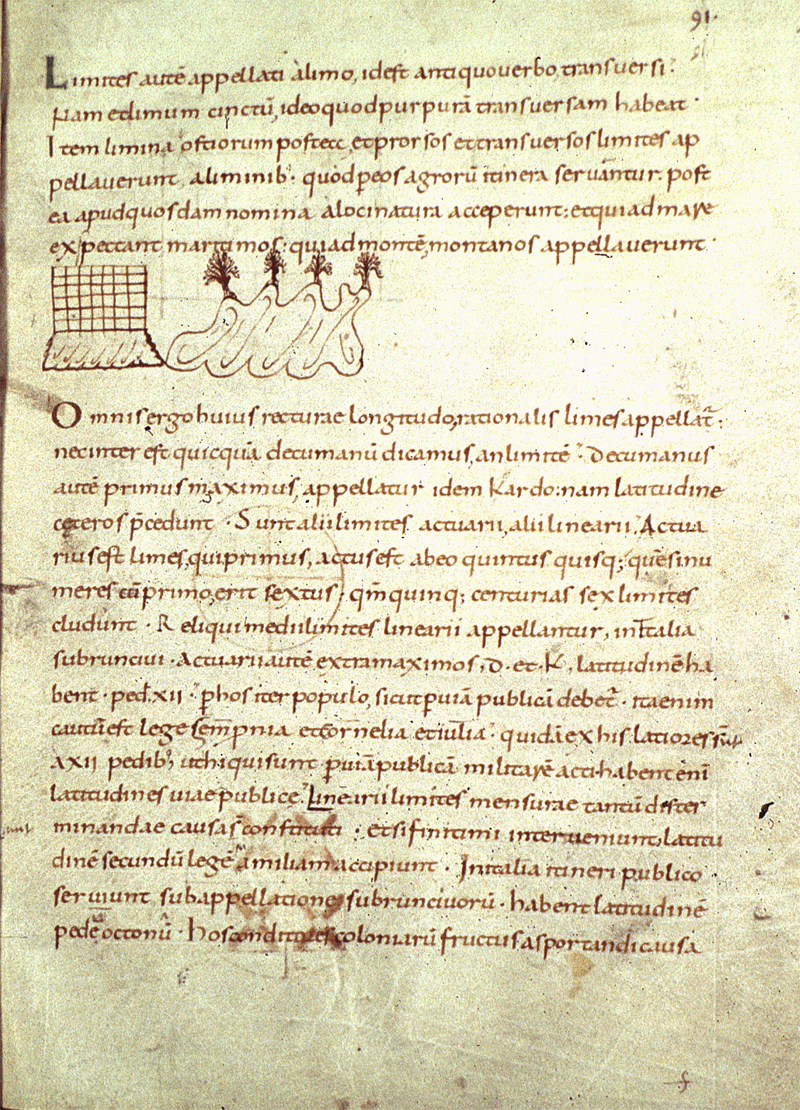 91.
Limites autē appellati alimo, idest antiquo uerbo, transuersi.
Nam et limum cinctū, ideo quod purpurā transuersam habeat.
Item limina ostiorum postea, et prorsos et transuersos limites ap
pellauerunt, aliminib. quod peos agrorū itinera seruantur. post
ea apud quosdam nomina alocinatura acceperunt: et qui ad mare
expectant maritimos: qui ad montē, montanos appellauerunt.
Omnis ergo huius recturae longitudo, rationalis limes appellat̄.
nec interest quicquā decumanū dicamus, an limitē. Decumanus
autē primus maximus, appellatur idem Kardo: nam latitudine
ceteros p̄cedunt. Sunt alii limites actuarii, alii linearii. Actua
rius est limes, qui primus, actus est abeo quintus quisq; quē si nu
meres cū primo, erit sextus; qm̄ quinq; centurias sex limites
cludunt. Reliqui medii limites linearii appellantur, in Italia
subrunciui. Actuarii autē extra maximos, D. et. K, latitudinē ha
bent. ped. xii. p hos iter populo, sicut puiā publicā debet̄. ita enim
cautū est lege sempnia et cornelia et iulia. quidā ex his latiores sunt
a xii pedib; ut hi qui sunt puiā publicā militarē acti. habent enī
latitudines uiae publice. Linearii limites mensurae tantū dister
minandae causa s̄ constituti. et si finitimi interueniunt, latitu
dinē secundū legē mamiliam accipiunt. In italia itineri publico
seruiunt sub appellatione subrunciuorū. habent latitudinē
pedē octonū. hos conditores coloniarū fructus asportandi causa